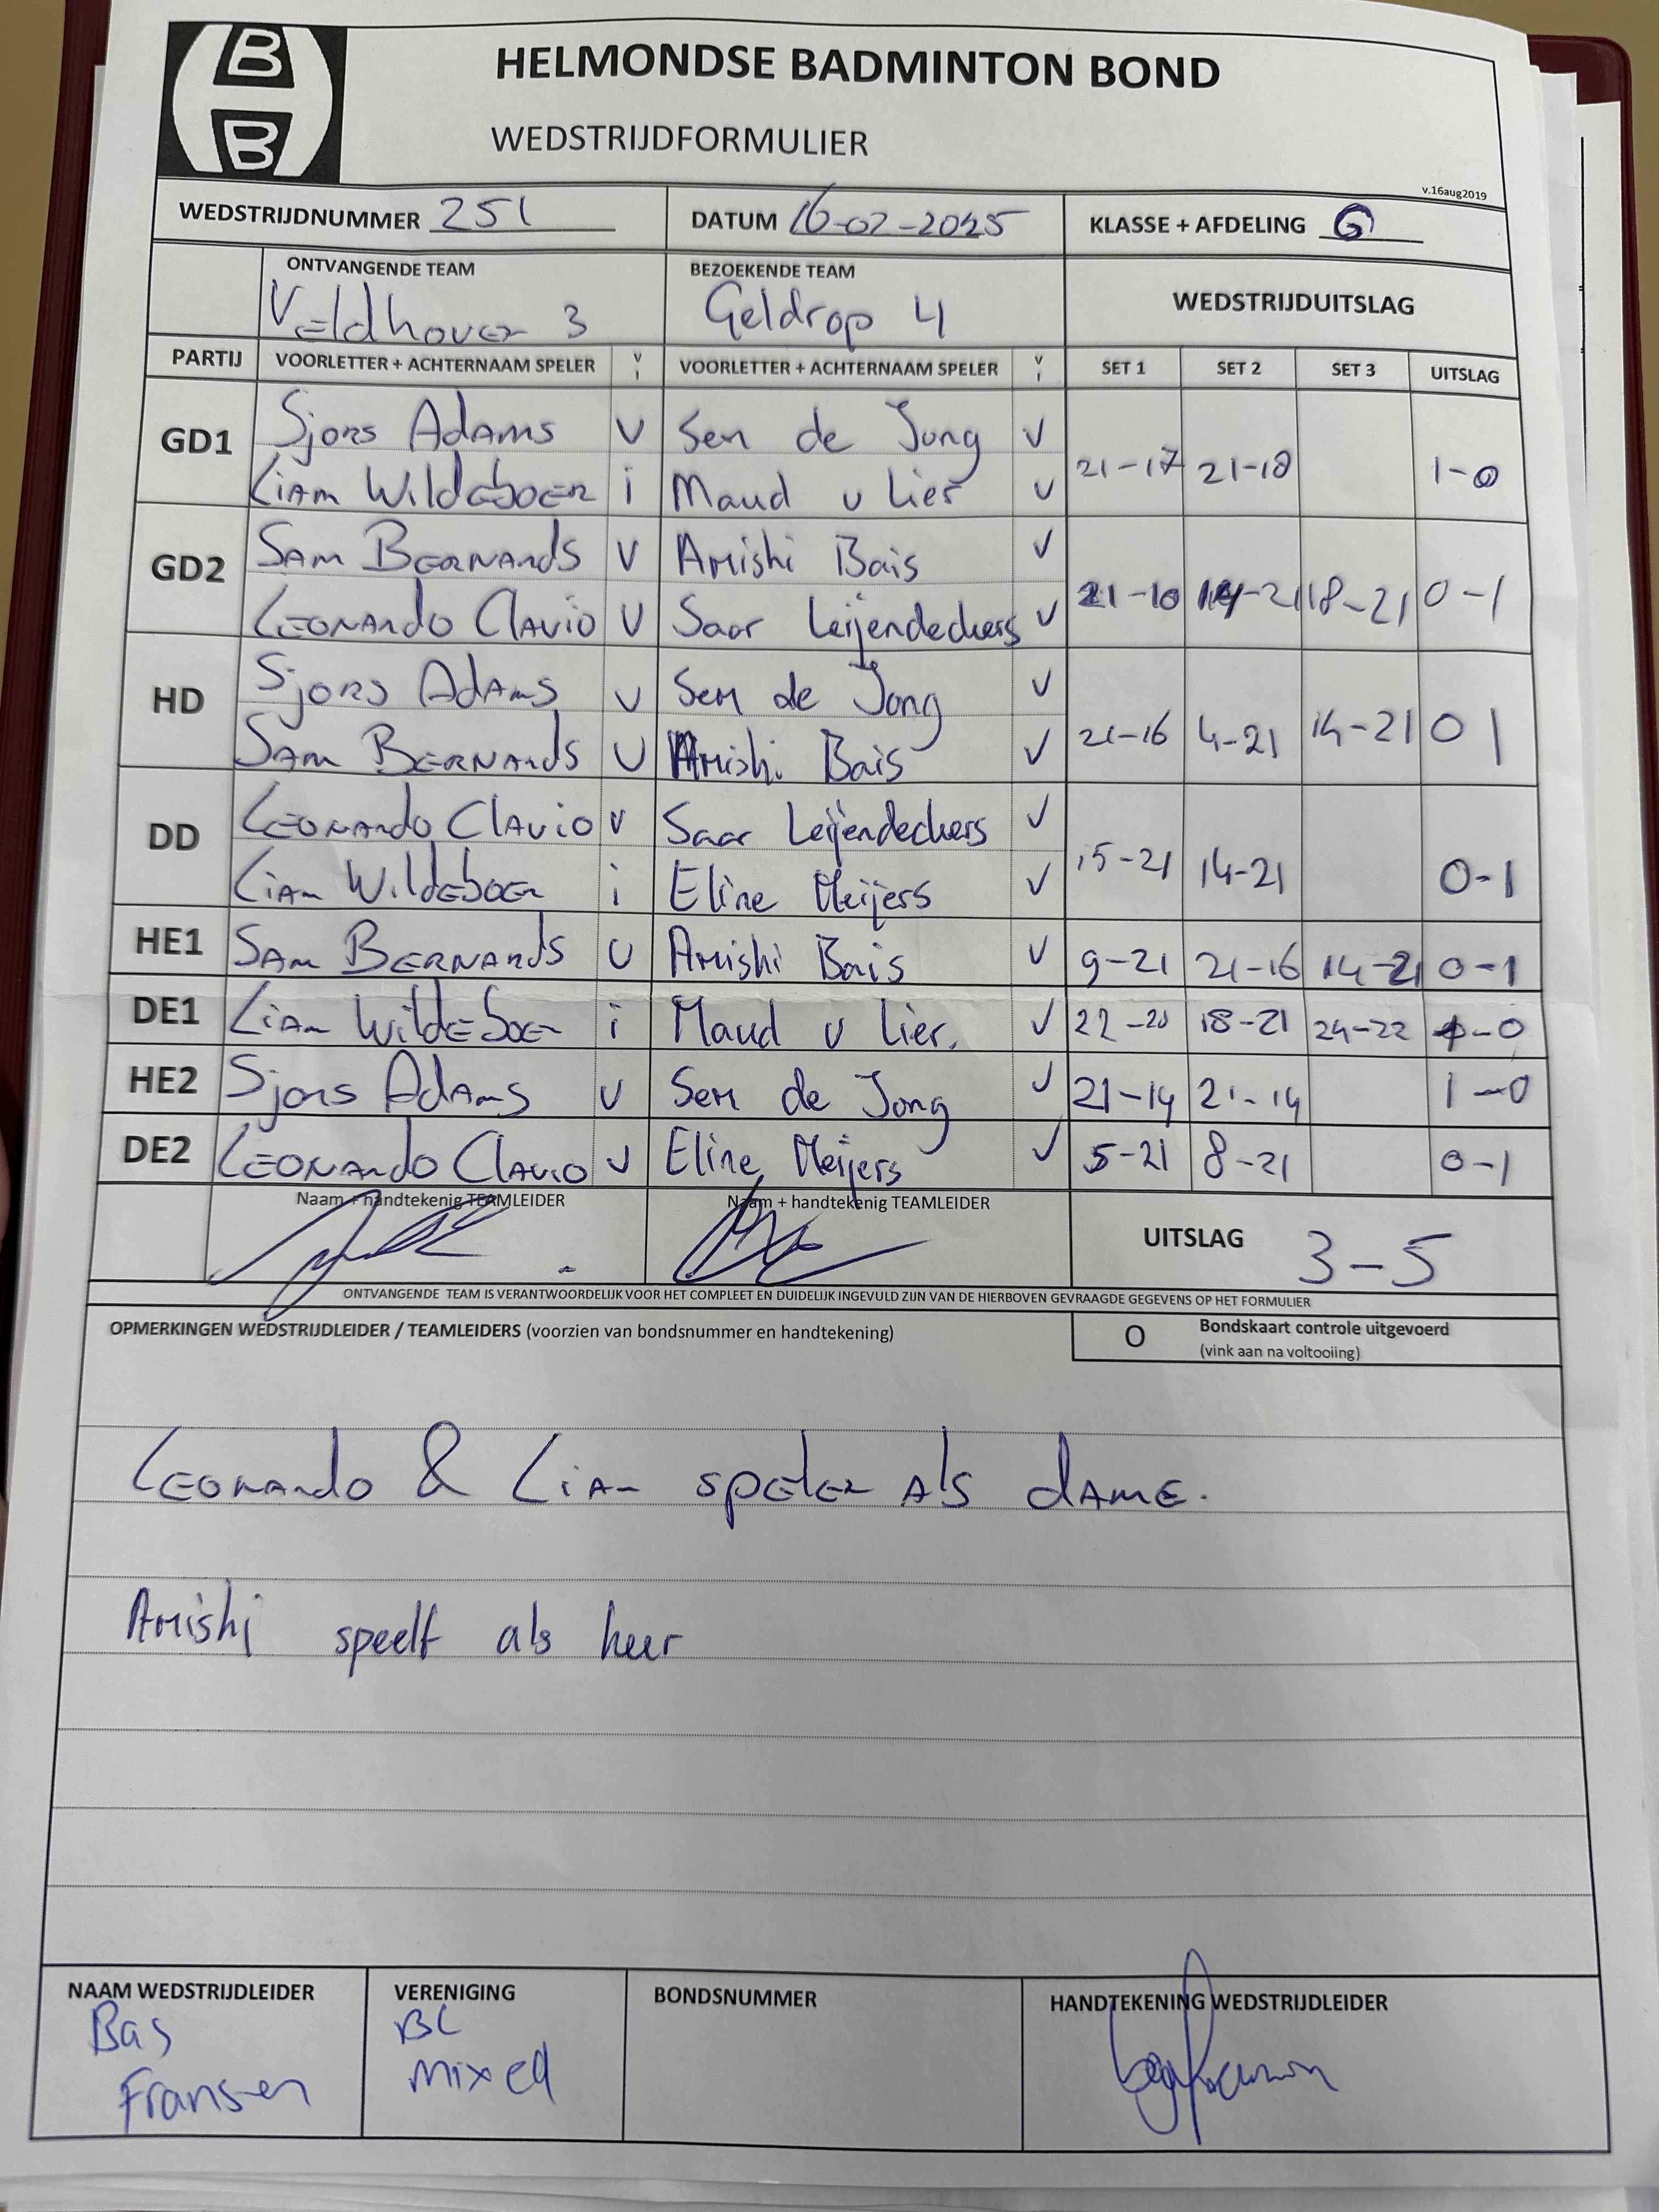 B
B
HELMONDSE BADMINTON BOND
WEDSTRIJDFORMULIER
v.16aug2019
WEDSTRIJDNUMMER 251 DATUM 16-02-2025 KLASSE + AFDELING G
ONTVANGENDE TEAM BEZOEKENDE TEAM WEDSTRIJDUITSLAG
Veldhoven 3 Geldrop 4
PARTIJ VOORLETTER + ACHTERNAAM SPELER V I VOORLETTER + ACHTERNAAM SPELER V I SET 1 SET 2 SET 3 UITSLAG
GD1 Sjors Adams V Sem de Jong V 21-17 21-18 1-0
Liam Wildeboer i Maud v Lier V
GD2 Sam Bernards V Amishi Bais V 21-10 14-21 18-21 0-1
Leonardo Clavio V Saar Leijendeckers V
HD Sjors Adams V Sem de Jong V 21-16 4-21 14-21 0 1
Sam Bernards V Amishi Bais V
DD Leonardo Clavio V Saar Leijendeckers V 15-21 14-21 0-1
Liam Wildeboer i Eline Meijers V
HE1 Sam Bernards V Amishi Bais V 9-21 21-16 14-21 0-1
DE1 Liam Wildeboer i Maud v Lier. V 22-20 18-21 24-22 1-0
HE2 Sjors Adams V Sem de Jong V 21-14 21-14 1-0
DE2 Leonardo Clavio V Eline Meijers V 5-21 8-21 0-1
Naam + handtekenig TEAMLEIDER Naam + handtekenig TEAMLEIDER
UITSLAG 3-5
ONTVANGENDE TEAM IS VERANTWOORDELIJK VOOR HET COMPLEET EN DUIDELIJK INGEVULD ZIJN VAN DE HIERBOVEN GEVRAAGDE GEGEVENS OP HET FORMULIER
OPMERKINGEN WEDSTRIJDLEIDER / TEAMLEIDERS (voorzien van bondsnummer en handtekening) O Bondskaart controle uitgevoerd
(vink aan na voltooiing)
Leonardo & Liam spelen als dame.
Amishi speelt als heer
NAAM WEDSTRIJDLEIDER VERENIGING BONDSNUMMER HANDTEKENING WEDSTRIJDLEIDER
Bas BC
Fransen mixed